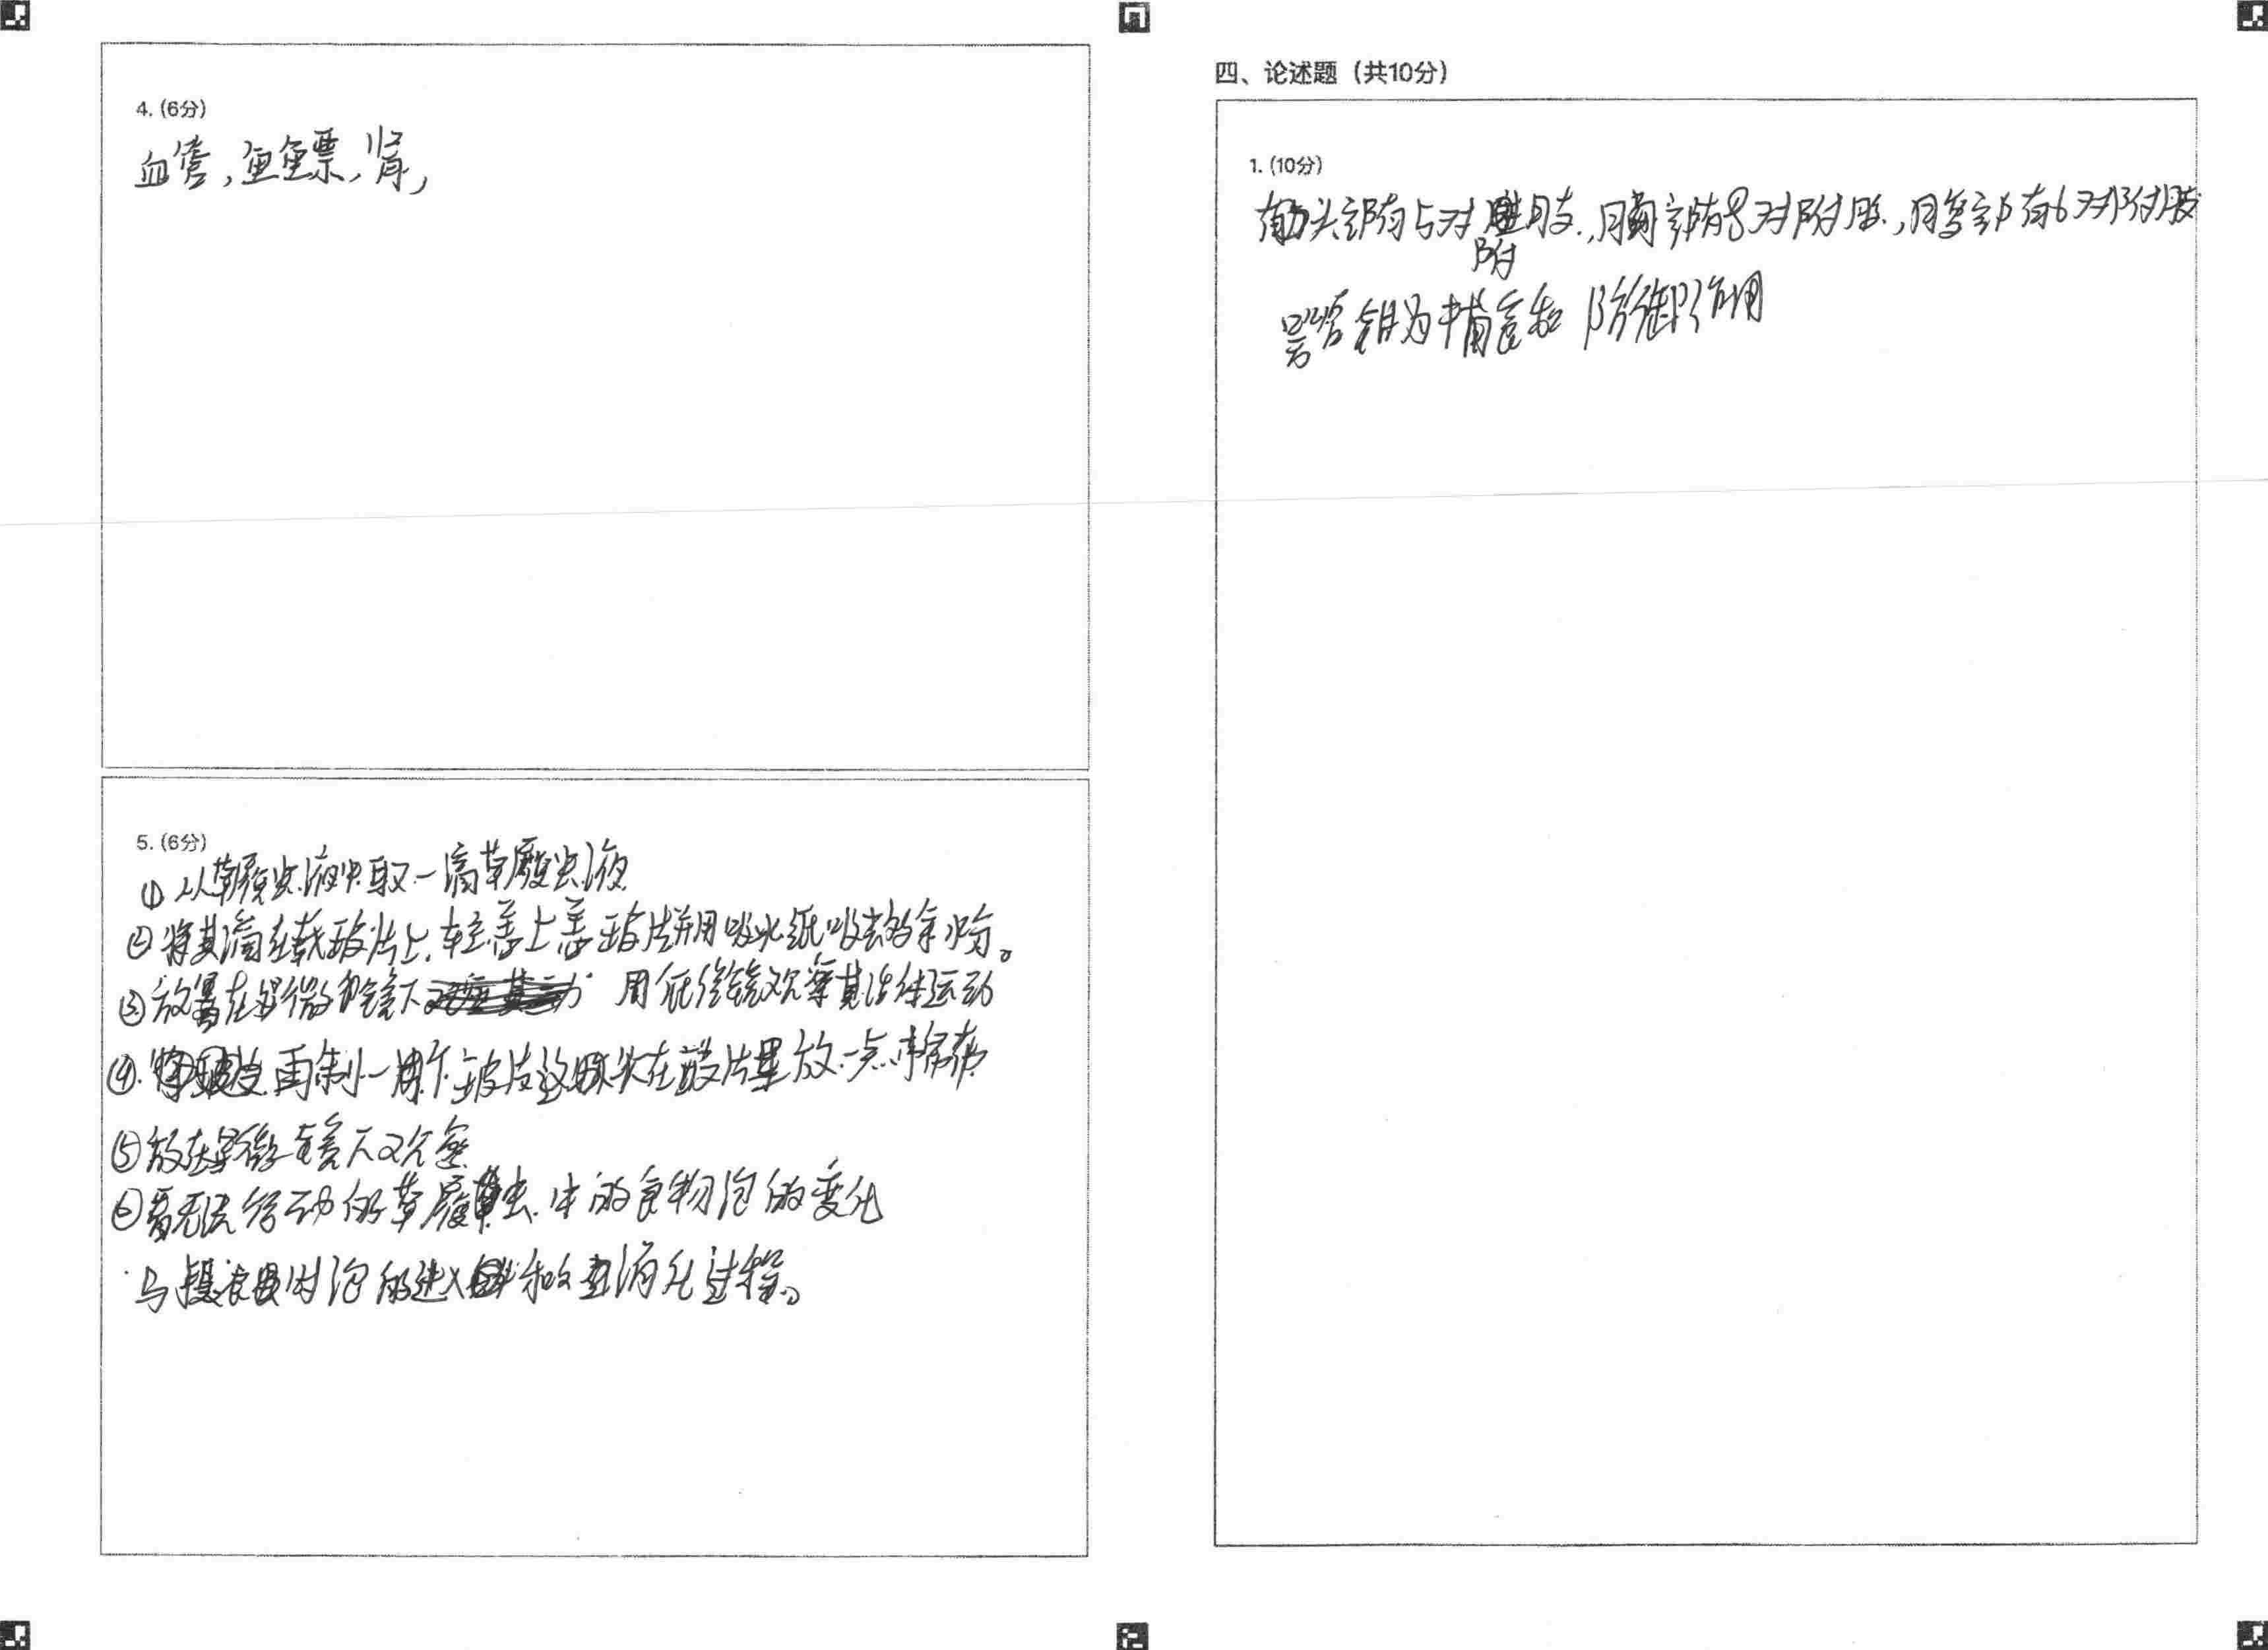 4. (6分)
血管，鱼鱼票，肾，
5. (6分)
① 从草履虫液中取一滴草履虫液
② 将其滴在载玻片上，轻盖上盖玻片并用吸水纸吸去多余水分。
③ 放置在显微镜下 用低倍镜观察其活体运动
④ 再制一 玻片 在 片里放一点
⑤ 放在显微镜下观察
⑥ 看无法行动的草履虫中的食物泡的变化
与 时泡的进入和 消化过程。
四、论述题（共10分）
1. (10分)
头部有5对附肢，胸部有8对附肢，腹部有6对附肢
螯钳为捕食和防御作用